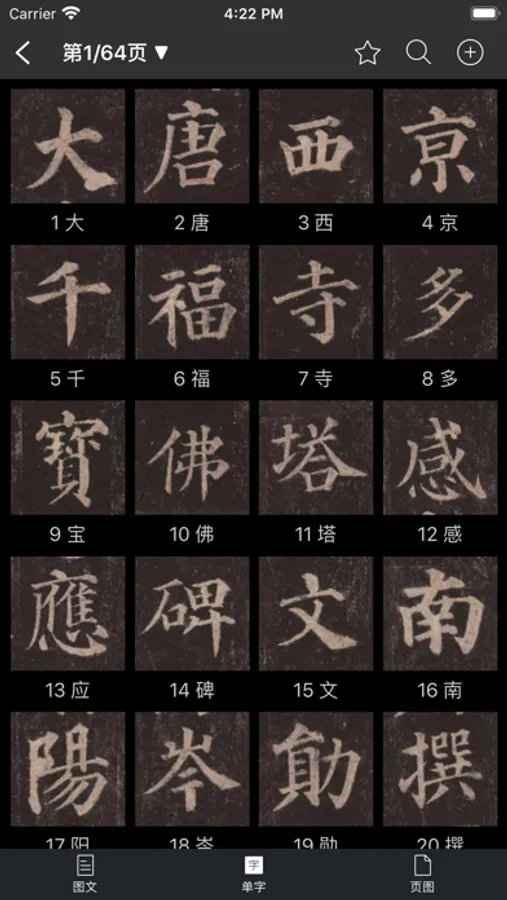 Carrier 4:22 PM
第1/64页 ▼
大 唐 西 京
1 大 2 唐 3 西 4 京
千 福 寺 多
5 千 6 福 7 寺 8 多
寳 佛 塔 感
9 宝 10 佛 11 塔 12 感
應 碑 文 南
13 应 14 碑 15 文 16 南
陽 岑 勛 撰
17 阳 18 岑 19 勋 20 撰
字
图文 单字 页图